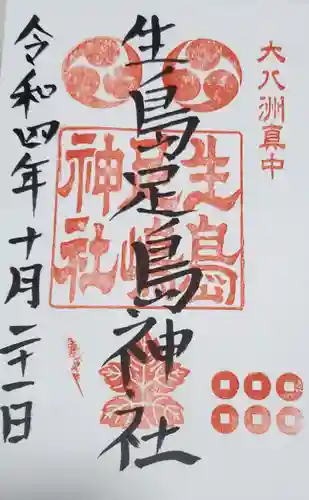 大八洲真中
生島足島神社
生島足嶋神社
令和四年十月二十一日